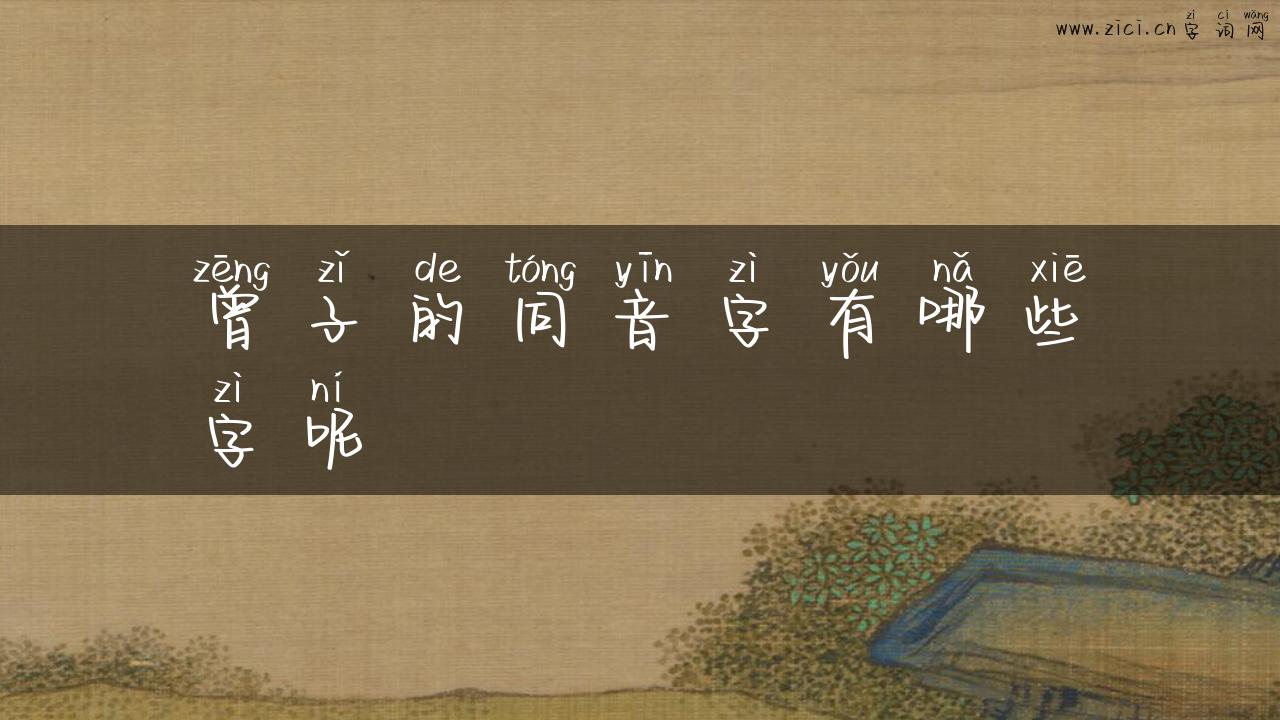 zì cí wǎng
www.zici.cn 字词网
zēng zǐ de tóng yīn zì yǒu nǎ xiē
曾子的同音字有哪些
zì ní
字呢